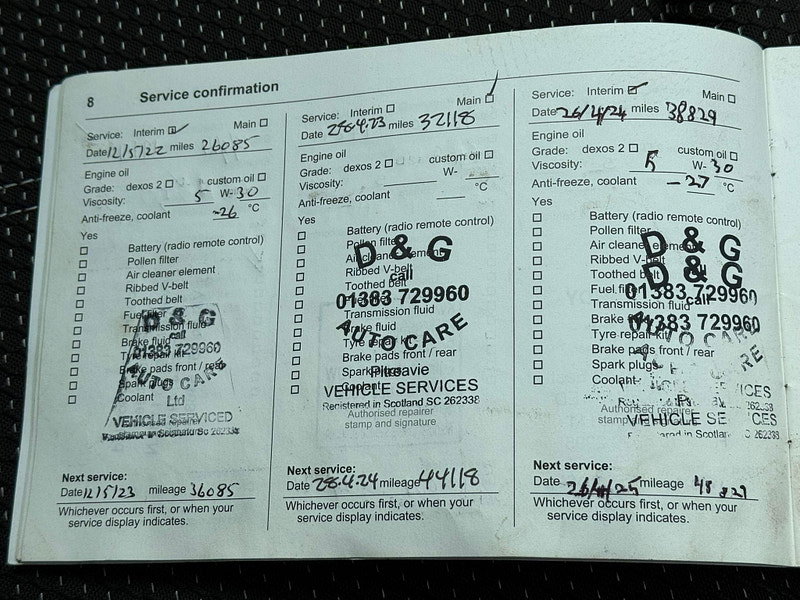 8 Service confirmation
Service: Interim ☑ Main ☐
Date 12/5/22 miles 26085
Engine oil
Grade: dexos 2 ☐ custom oil ☐
Viscosity: 5 W- 30
Anti-freeze, coolant -26 °C
Yes
☐ Battery (radio remote control)
☐ Pollen filter
☐ Air cleaner element
☐ Ribbed V-belt
☐ Toothed belt
☐ Fuel filter
☐ Transmission fluid
☐ Brake fluid
☐ Tyre repair kit
☐ Brake pads front / rear
☐ Spark plugs
☐ Coolant
D & G
call
01383 729960
AUTO CARE
Ltd
VEHICLE SERVICED
Next service:
Date 12/5/23 mileage 36085
Whichever occurs first, or when your
service display indicates.
Service: Interim ☐ Main ☑
Date 28.4.23 miles 32118
Engine oil
Grade: dexos 2 ☐ custom oil ☐
Viscosity: W-
Anti-freeze, coolant °C
Yes
☐ Battery (radio remote control)
☐ Pollen filter
☐ Air cleaner element
☐ Ribbed V-belt
☐ Toothed belt
☐ Fuel filter
☐ Transmission fluid
☐ Brake fluid
☐ Tyre repair kit
☐ Brake pads front / rear
☐ Spark plugs
☐ Coolant
D & G
call
01383 729960
AUTO CARE
Pitreavie
VEHICLE SERVICES
Registered in Scotland SC 262338
Authorised repairer
stamp and signature
Next service:
Date 28.4.24 mileage 44118
Whichever occurs first, or when your
service display indicates.
Service: Interim ☑ Main ☐
Date 26/4/24 miles 38829
Engine oil
Grade: dexos 2 ☐ custom oil ☐
Viscosity: 5 W- 30
Anti-freeze, coolant -27 °C
Yes
☐ Battery (radio remote control)
☐ Pollen filter
☐ Air cleaner element
☐ Ribbed V-belt
☐ Toothed belt
☐ Fuel filter
☐ Transmission fluid
☐ Brake fluid
☐ Tyre repair kit
☐ Brake pads front / rear
☐ Spark plugs
☐ Coolant
D & G
D & G
01383 729960
call
01383 729960
Authorised repairer
Next service:
Date 26/4/25 mileage 48829
Whichever occurs first, or when your
service display indicates.